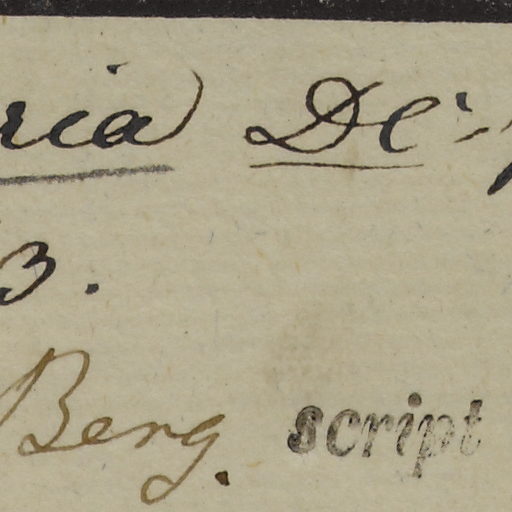 ria DC
3.
Berg. script